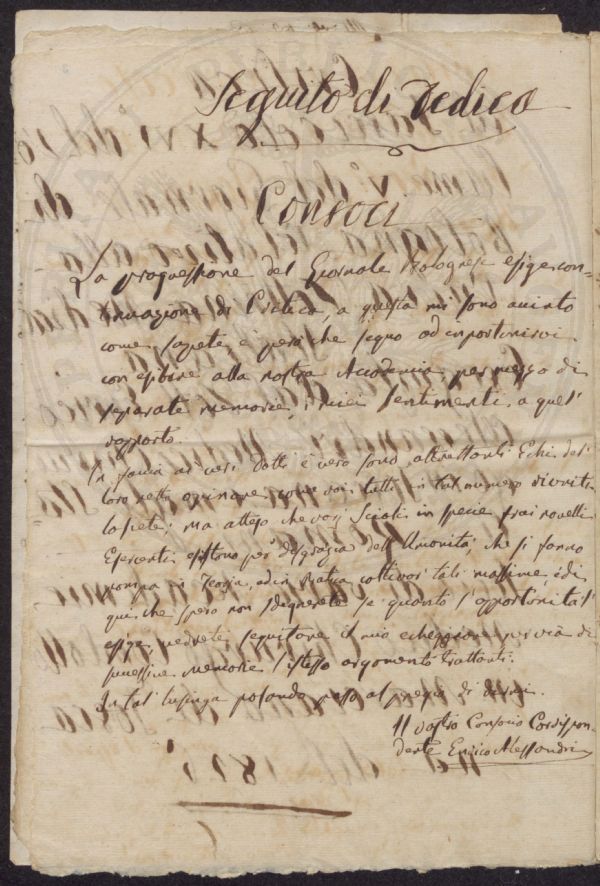 Seguito di Dedica
Consoci
La progressione del Giornale Bolognese esige con-
tinuazione di Critica, a questa mi sono aviato
come sapete, e però che seguo ad importunarvi
con esibire alla nostra Accademia per mezzo di
separate memorie, i miei sentimenti a quel
rapporto.
In faccia ai veri dotti è vero sono altrettanti Echi del
loro retto opinare, come voi tutti in tal numero
lo siete; ma atteso che varj Scioli in specie frai novelli
Esercenti esistono per disgrazia dell'Umanità, che si fanno
pompa in Teoria, ed in Pratica coltivar tali massime, è di
qui, che spero non sdegnerete se quanto l'opportunità
esige, vedrete seguitare il mio echeggiare per via di
memorie l'istesso argomento trattanti.
In tal lusinga passo al pregio di dirmi.
Il vostro Consocio Corrispon-
dente Enrico Alessandri